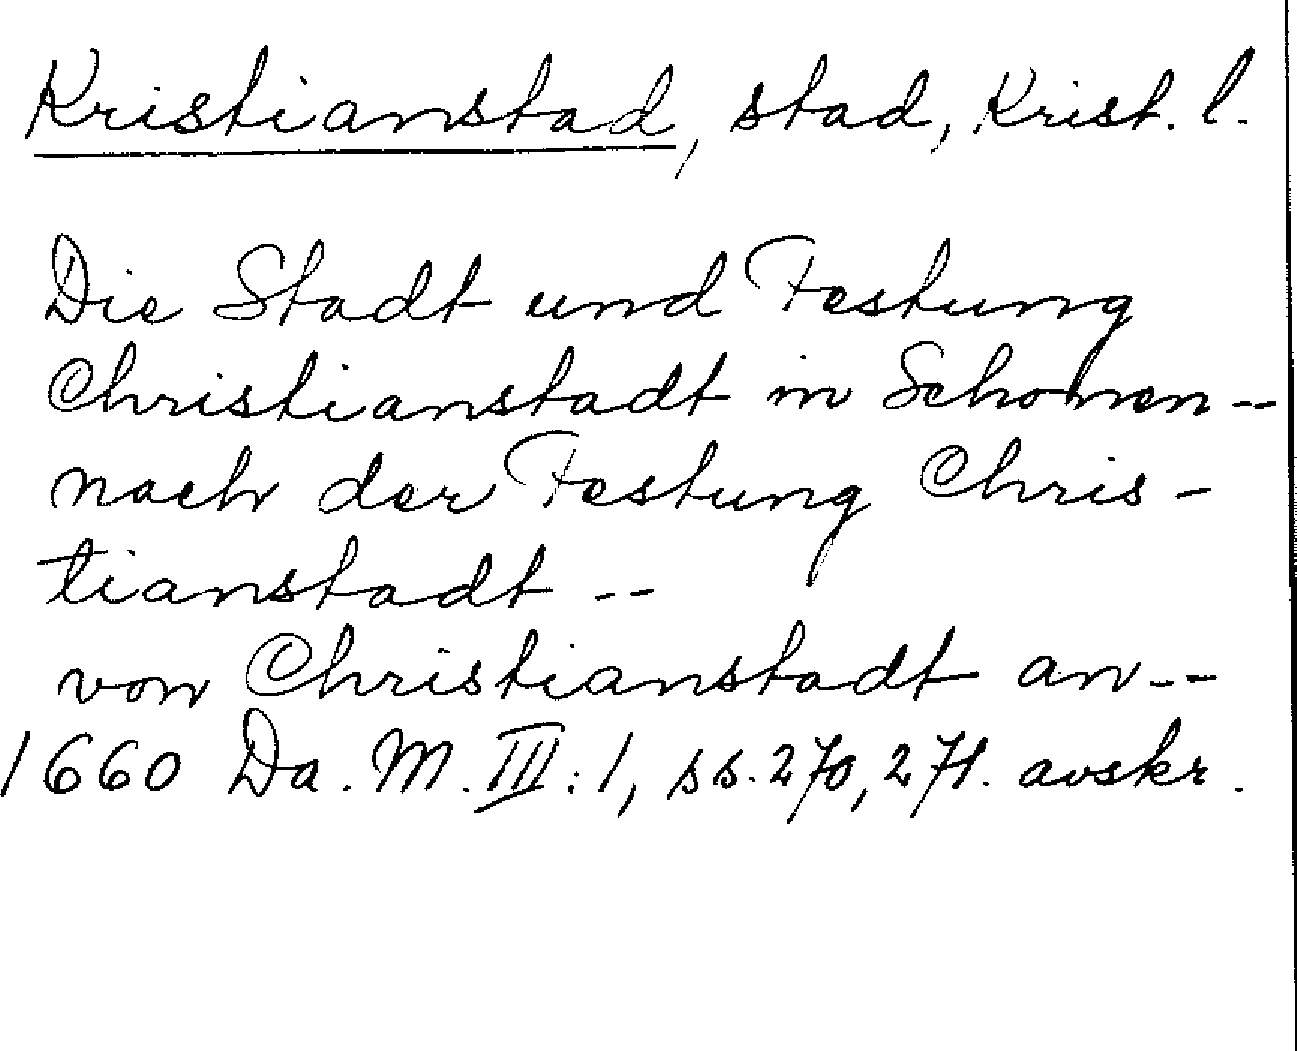 Kristianstad, stad, Krist. l.
Die Stadt und Festung
Christianstadt in Schonen --
nach der Festung Chris-
tianstadt --
von Christianstadt an --
1660 Da. M. III: 1, ss. 270, 271. avskr.